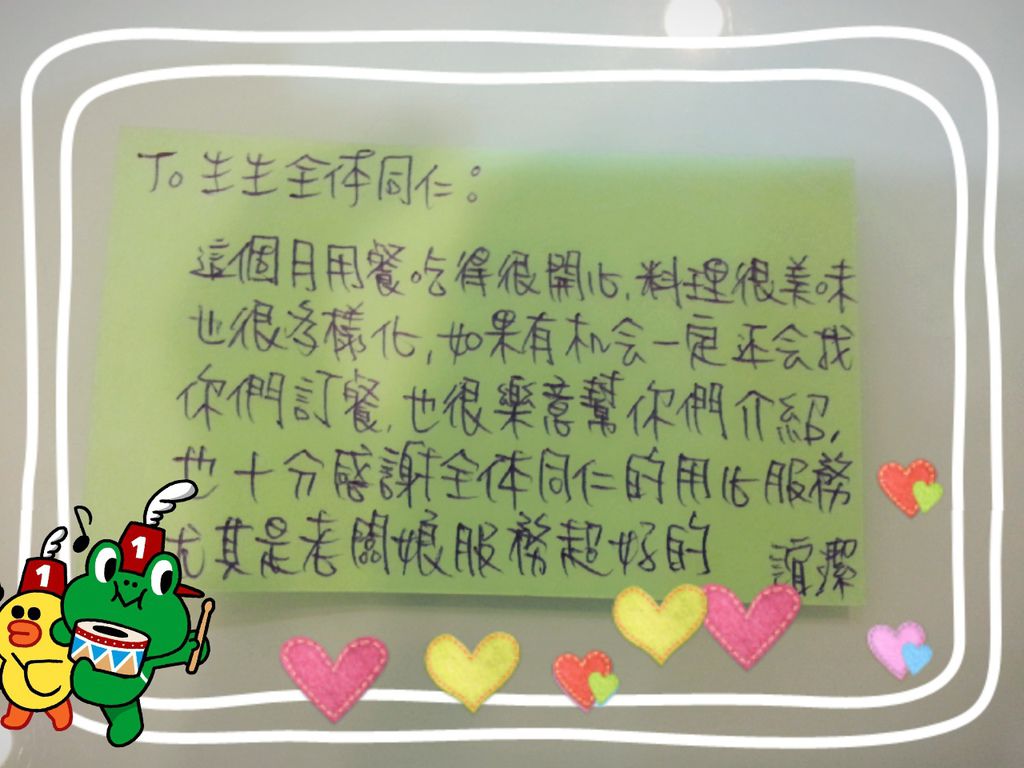 To 生生全体同仁：
這個月用餐吃得很開心,料理很美味
也很多樣化,如果有机会一定还会找
你們訂餐,也很樂意幫你們介紹,
也十分感謝全体同仁的用心服務
尤其是老闆娘服務超好的
誼潔
1
1